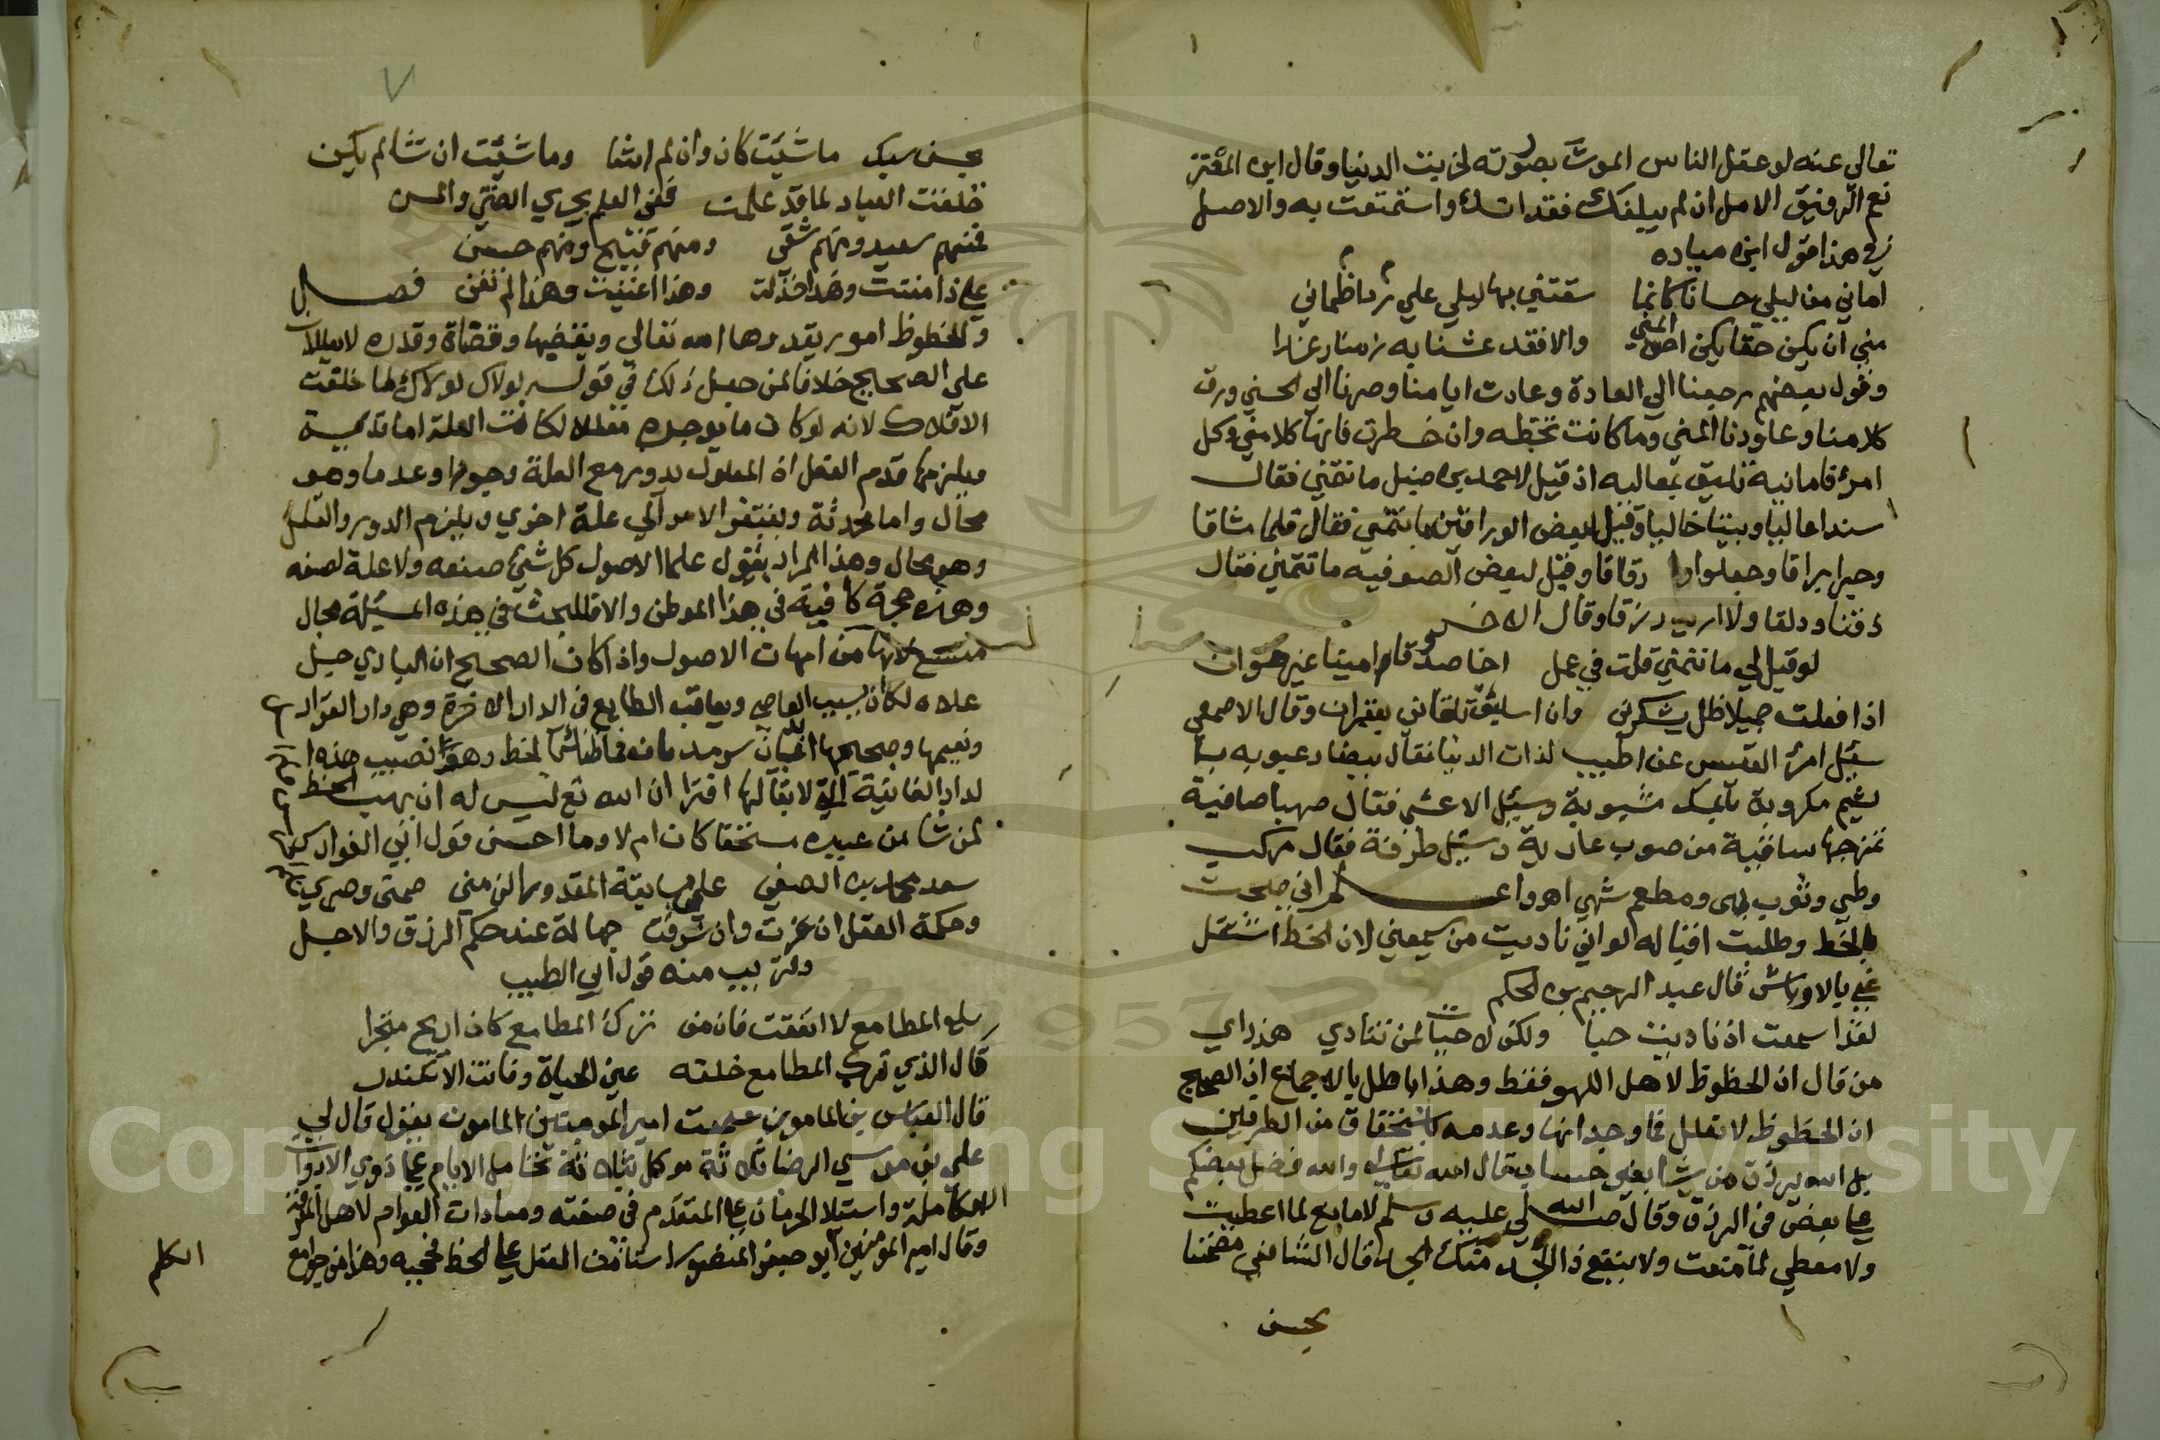 تعالي عنه لو عقل الناس الموت بصورته لخربت الدنيا وقال ابن المعتز
نع الرفيق الامل ان لم يبلغك فقد انسك واستمتعت به والاصل
في هذا قول ابن ميادة
اماني من ليلي حسانا كانما سقتني بها ليلي علي ظما
مني ان يكن حقا يكن احسن المني والا فقد عشنا به زمنا رغدا
وقول بعضهم رجعنا الي العادة وعادت ايامنا وصرنا الي الحسني ورق
كلامنا وعاودنا المني وما كانت تخطه وان خطرت فانها كلا مني وكل
امرئ فامانيه تليق بمعاليه اذ قيل لاحمد بن حنبل ما تتمني فقال
سندا عاليا وبيتا خاليا وقيل لبعض الوراقين ما تتمني فقال قلما مشاقا
وحبرا براقا وجلودا رقاقا وقيل لبعض الصوفيه ما تتمني فقال
دفنا ودلقا ولا اريد رزقا وقال الاخر
لو قيل لي ما تتمني قلت في عمل اخا صدوقا امينا غير خوان
اذا فعلت جميلا ظل يشكرني وان اسات تلقاني بغفران وقال الاصمعي
سئيل امرئ القيس عن اطيب لذات الدنيا فقال بيضا رعبوبه
بشحم مكروبة بالمسك مشبوبة وسئيل الاعشي فقال صهبا صافية
تمزجها ساقية من صوب عادية وسئيل طرفة فقال مركب
وطي وثوب بهي ومطعم شهي اهوا
بالحظ وطلبت اقباله لو اني ناديت من يسمعني لان الحظ اشتغل
عني بالاوباش قال عبد الرحيم بن الحكم
لقد اسمعت اذ ناديت حيا ولكن لا حياة لمن تنادي هذا راي
من قال ان الحظوظ لاهل اللهو فقط وهذا باطل بالاجماع اذ الصحيح
ان الحظوظ لا تعلل فما وجدانها وعدمه باستحقاق من الطرفين
بل الله يرزق من يشا بغير حساب قال الله تعالي والله فضل بعضكم
علي بعض في الرزق وقال صلي الله عليه وسلم لا مانع لما اعطيت
ولا معطي لما منعت ولا ينفع ذا الجد منك الجد قال الشافعي
بحسن
٧
بحسن سبك ما شئيت كان وان لم اشا وما شئيت ان تشا لم يكن
خلقت العباد لما قد علمت ففي العلم يجري الفتي والمسن
فمنهم سعيد ومنهم شقي ومنهم قبيح ومنهم حسن
علي ذا مننت وهذا خذلت وهذا اعنت وهذا لم تعن فصل
والحظوظ امور يقدرها الله تعالي ويقضيها وقضاه وقدره لا يعللان
علي الصحيح خلافا لمن جعل ذلك في قوله لولاك لولاك لما خلقت
الافلاك لانه لو كان ما يوجده معللا لكانت العلة اما قديمة
ويلزمها قدم الفعل اذ المعلول يدور مع العلة وجودا وعدما وهو
محال واما محدثة ويفتقر الامر الي علة اخري ويلزم الدور والتسلسل
وهو محال وهذا المراد بقول علما الاصول كل شئ صنعه ولا علة لصنعه
وهذه حجة كافية في هذا الموطن والا فالبحث في هذه المسئيلة مجال
متسع لانها من امهات الاصول واذا كان الصحيح ان الباري جل
علاه لكان يثيب العاصي ويعاقب الطايع في الدار الاخرة وهي دار القرار
ونعيمها وجحيمها سرمد فما ظنك بالحظ وهو نصيب هذه ا
لدار الفانية التي لا بقا لها افترا ان الله تع ليس له ان يهب الحظ
لمن شا من عبيده مستحقا كان ام لا وما احسن قول ابي الفوارس
سعد محمد بن الصفي علي سابقة المقدور الزمني صمتي وصبري
وحكمة العقل ان عزت وان شرفت جهالة عند حكم الرزق والاجل
وقريب منه قول ابي الطيب
المطامع لا اتفقت فان من ترك المطامع كان اربح متجرا
قال الذي ترك المطامع خلفه عين الحياة وفاتت الاسكندر
قال العباس بن المامون سمعت امير المومنين المامون يقول قال لي
علي بن موسي الرضا ثلاثة موكل بثلاثة تحامل الايام علي ذوي الادوات
الكاملة واستيلا الحرمان علي المتقدم في صنعته ومعادات العوام لاهل المعرفة
وقال امير المومنين ابو جعفر المنصور استاذن العقل علي الحظ فحجبه وهذا من جوامع
الكلم
Copyright © King Saud University
1957